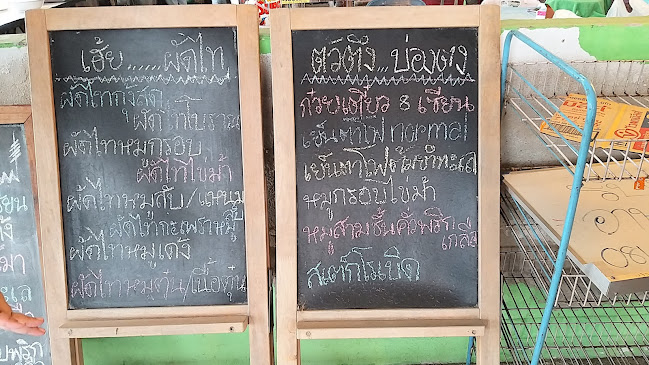 เฮ้ย......ผัดไท
ผัดไทกุ้งสด
ผัดไทโบราณ
ผัดไทหมูกรอบ
ผัดไทไข่ม้า
ผัดไทหมูสับ/แหนม
ผัดไทกะเพราหมูสับ
ผัดไทหมูเด้ง
ผัดไทหมูตุ๋น/เนื้อตุ๋น
ตัวตึง...บ่องตง
ก๋วยเตี๋ยว 8 เซียน
เย็นตาโฟ normal
เย็นตาโฟต้มยำทะเล
หมูกรอบไข่ม้า
หมูสามชั้นคั่วพริกเกลือ
สเต็กโนเบิด